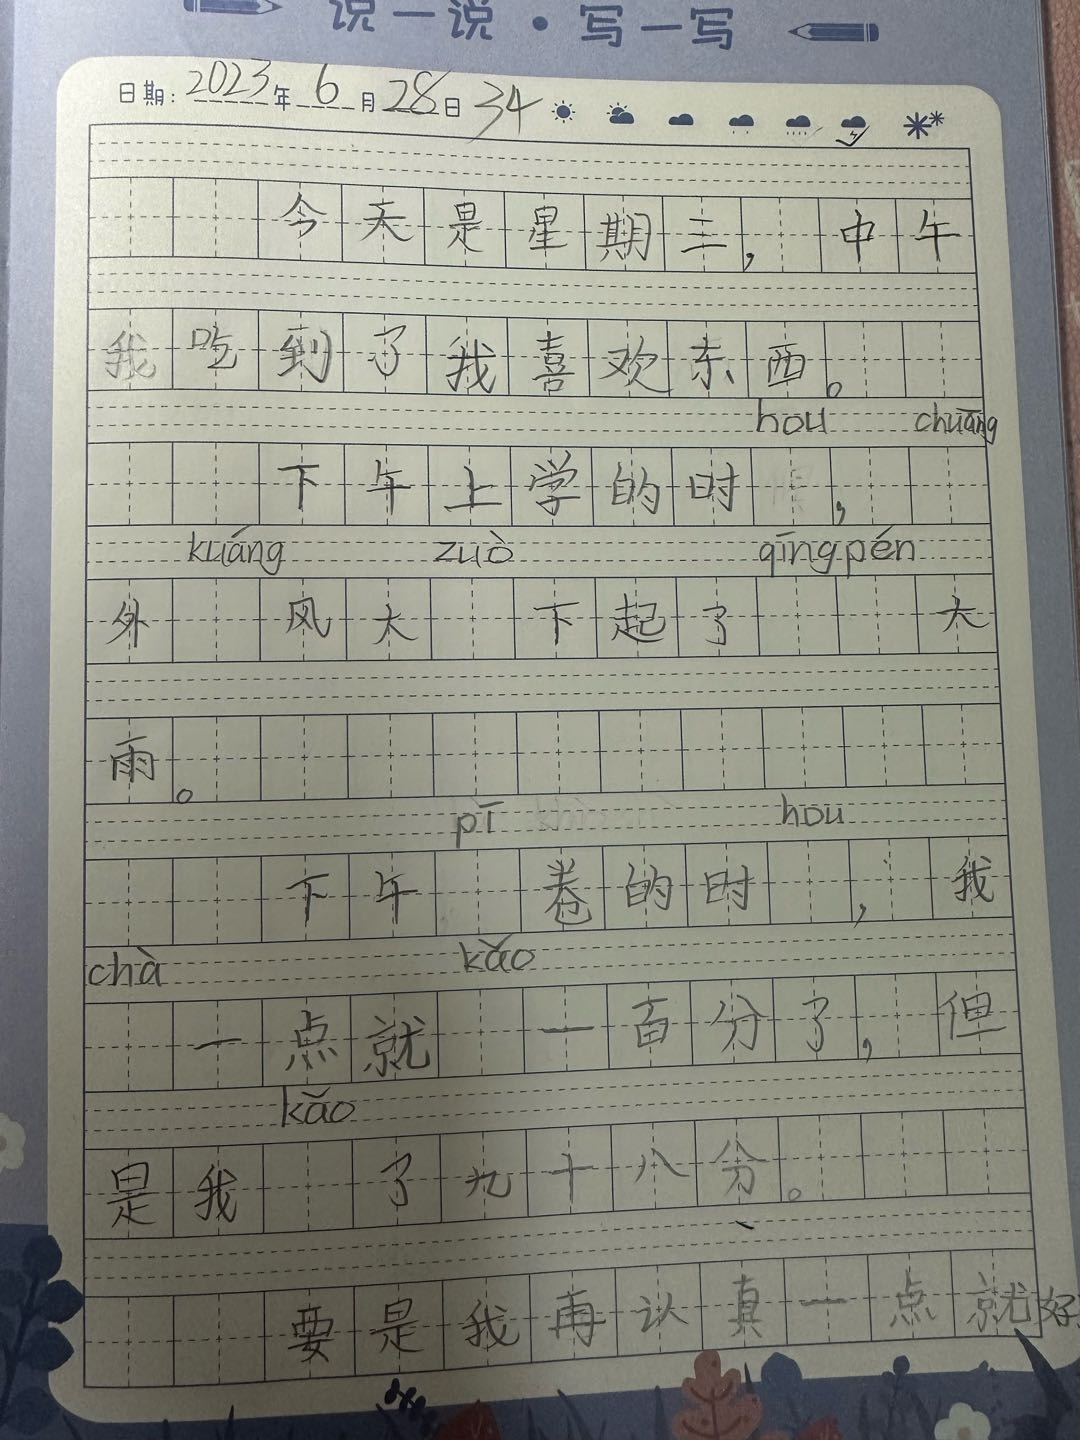 说一说·写一写
日期：2023年6月28日 34
今天是星期三，中午
我吃到了我喜欢东西。
hou chuāng
下午上学的时，
kuáng zuò qīngpén
外风大下起了大
雨。
pī hou
下午卷的时，我
chà kǎo
一点就一百分了，但
kǎo
是我了九十八分。
要是我再认真一点就好